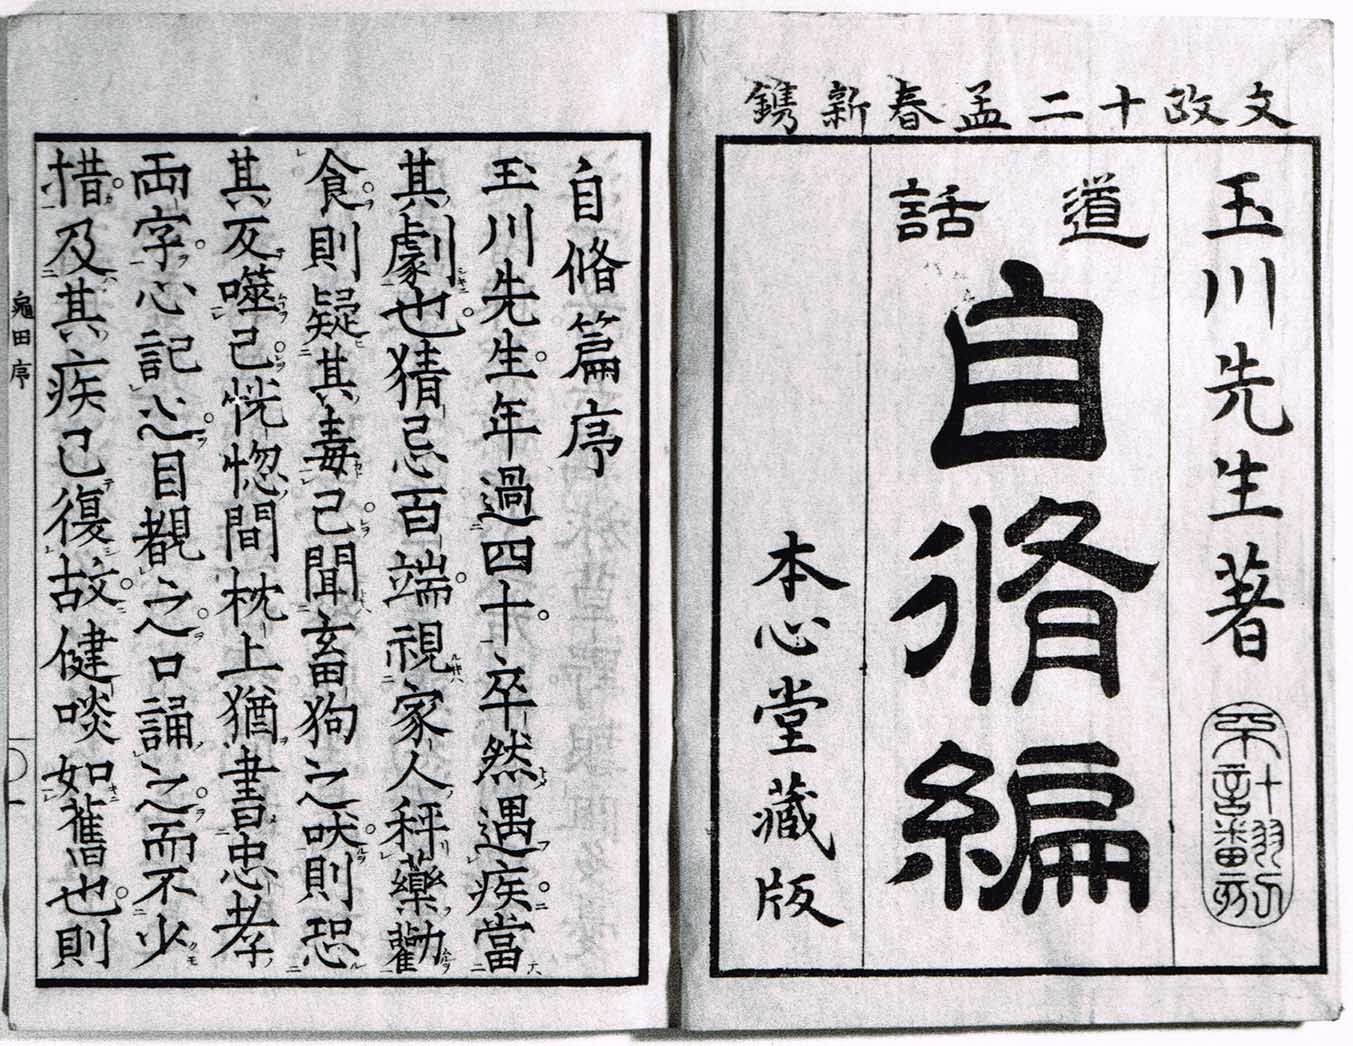 文政十二孟春新鐫
玉川先生著
道話
自脩編
本心堂藏版
自脩篇序
玉川先生年過四十卒然遇疾當
其劇也猜忌百端視家人秤藥勸
食則疑其毒己聞畜狗之吠則恐
其反噬己恍惚間枕上猶書忠孝
両字心記之目覩之口誦之而不少
措及其疾已復故健啖如舊也則
龜田序